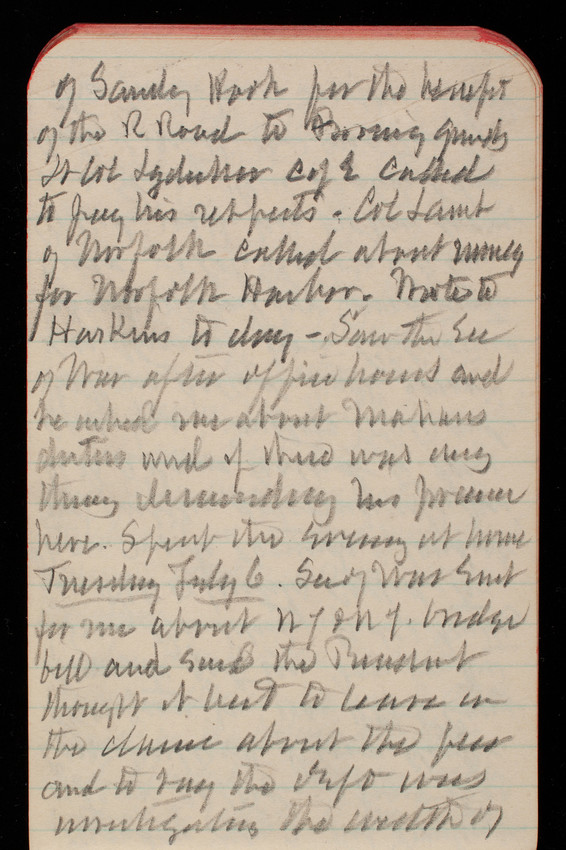 of Sandy Hook for the benefit
of the R Road to Proving grounds
Lt Col Lydecker C of E called
to pay his respects. Col Lamb
of Norfolk called about money
for Norfolk Harbor. Wrote to
Harkins to day - Saw the Sec
of War after office hours and
he asked me about Mahans
duties and if there was any
thing demanding his presence
here. Spent the evening at home
Tuesday July 6. Sec of War sent
for me about N Y & N J. bridge
bill and said the President
thought it best to leave in
the clause about the
and to say the Dept was
investigating the width of